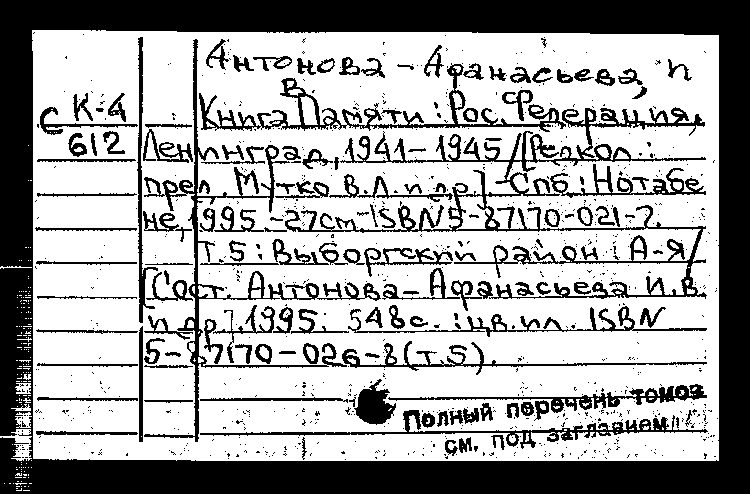 Антонова-Афанасьева, И
В
Книга Памяти : Рос. Федерация,
С К-4
612
Ленинград, 1941-1945 / [Редкол.:
пред. Мутко В.Л. и др.]. -Спб : Нотабе
не, 1995. -27см-ISBN 5-87170-021-7.
Т.5 : Выборгский район : А-Я /
[Сост. Антонова-Афанасьева И.В.
и др.]. 1995. 548с. : цв.ил. ISBN
5-87170-026-8 (Т.5).
Полный перечень томов
см. под заглавием